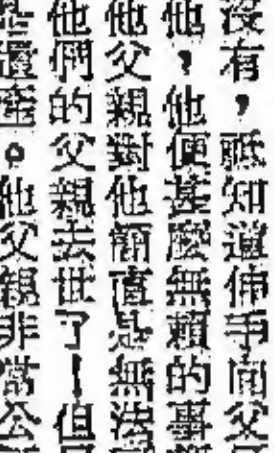 沒有，祗知道伸手向父
他，他便甚麼無賴的事
他父親對他簡直是無法
他們的父親去世了！但
是遺產。他父親非常公